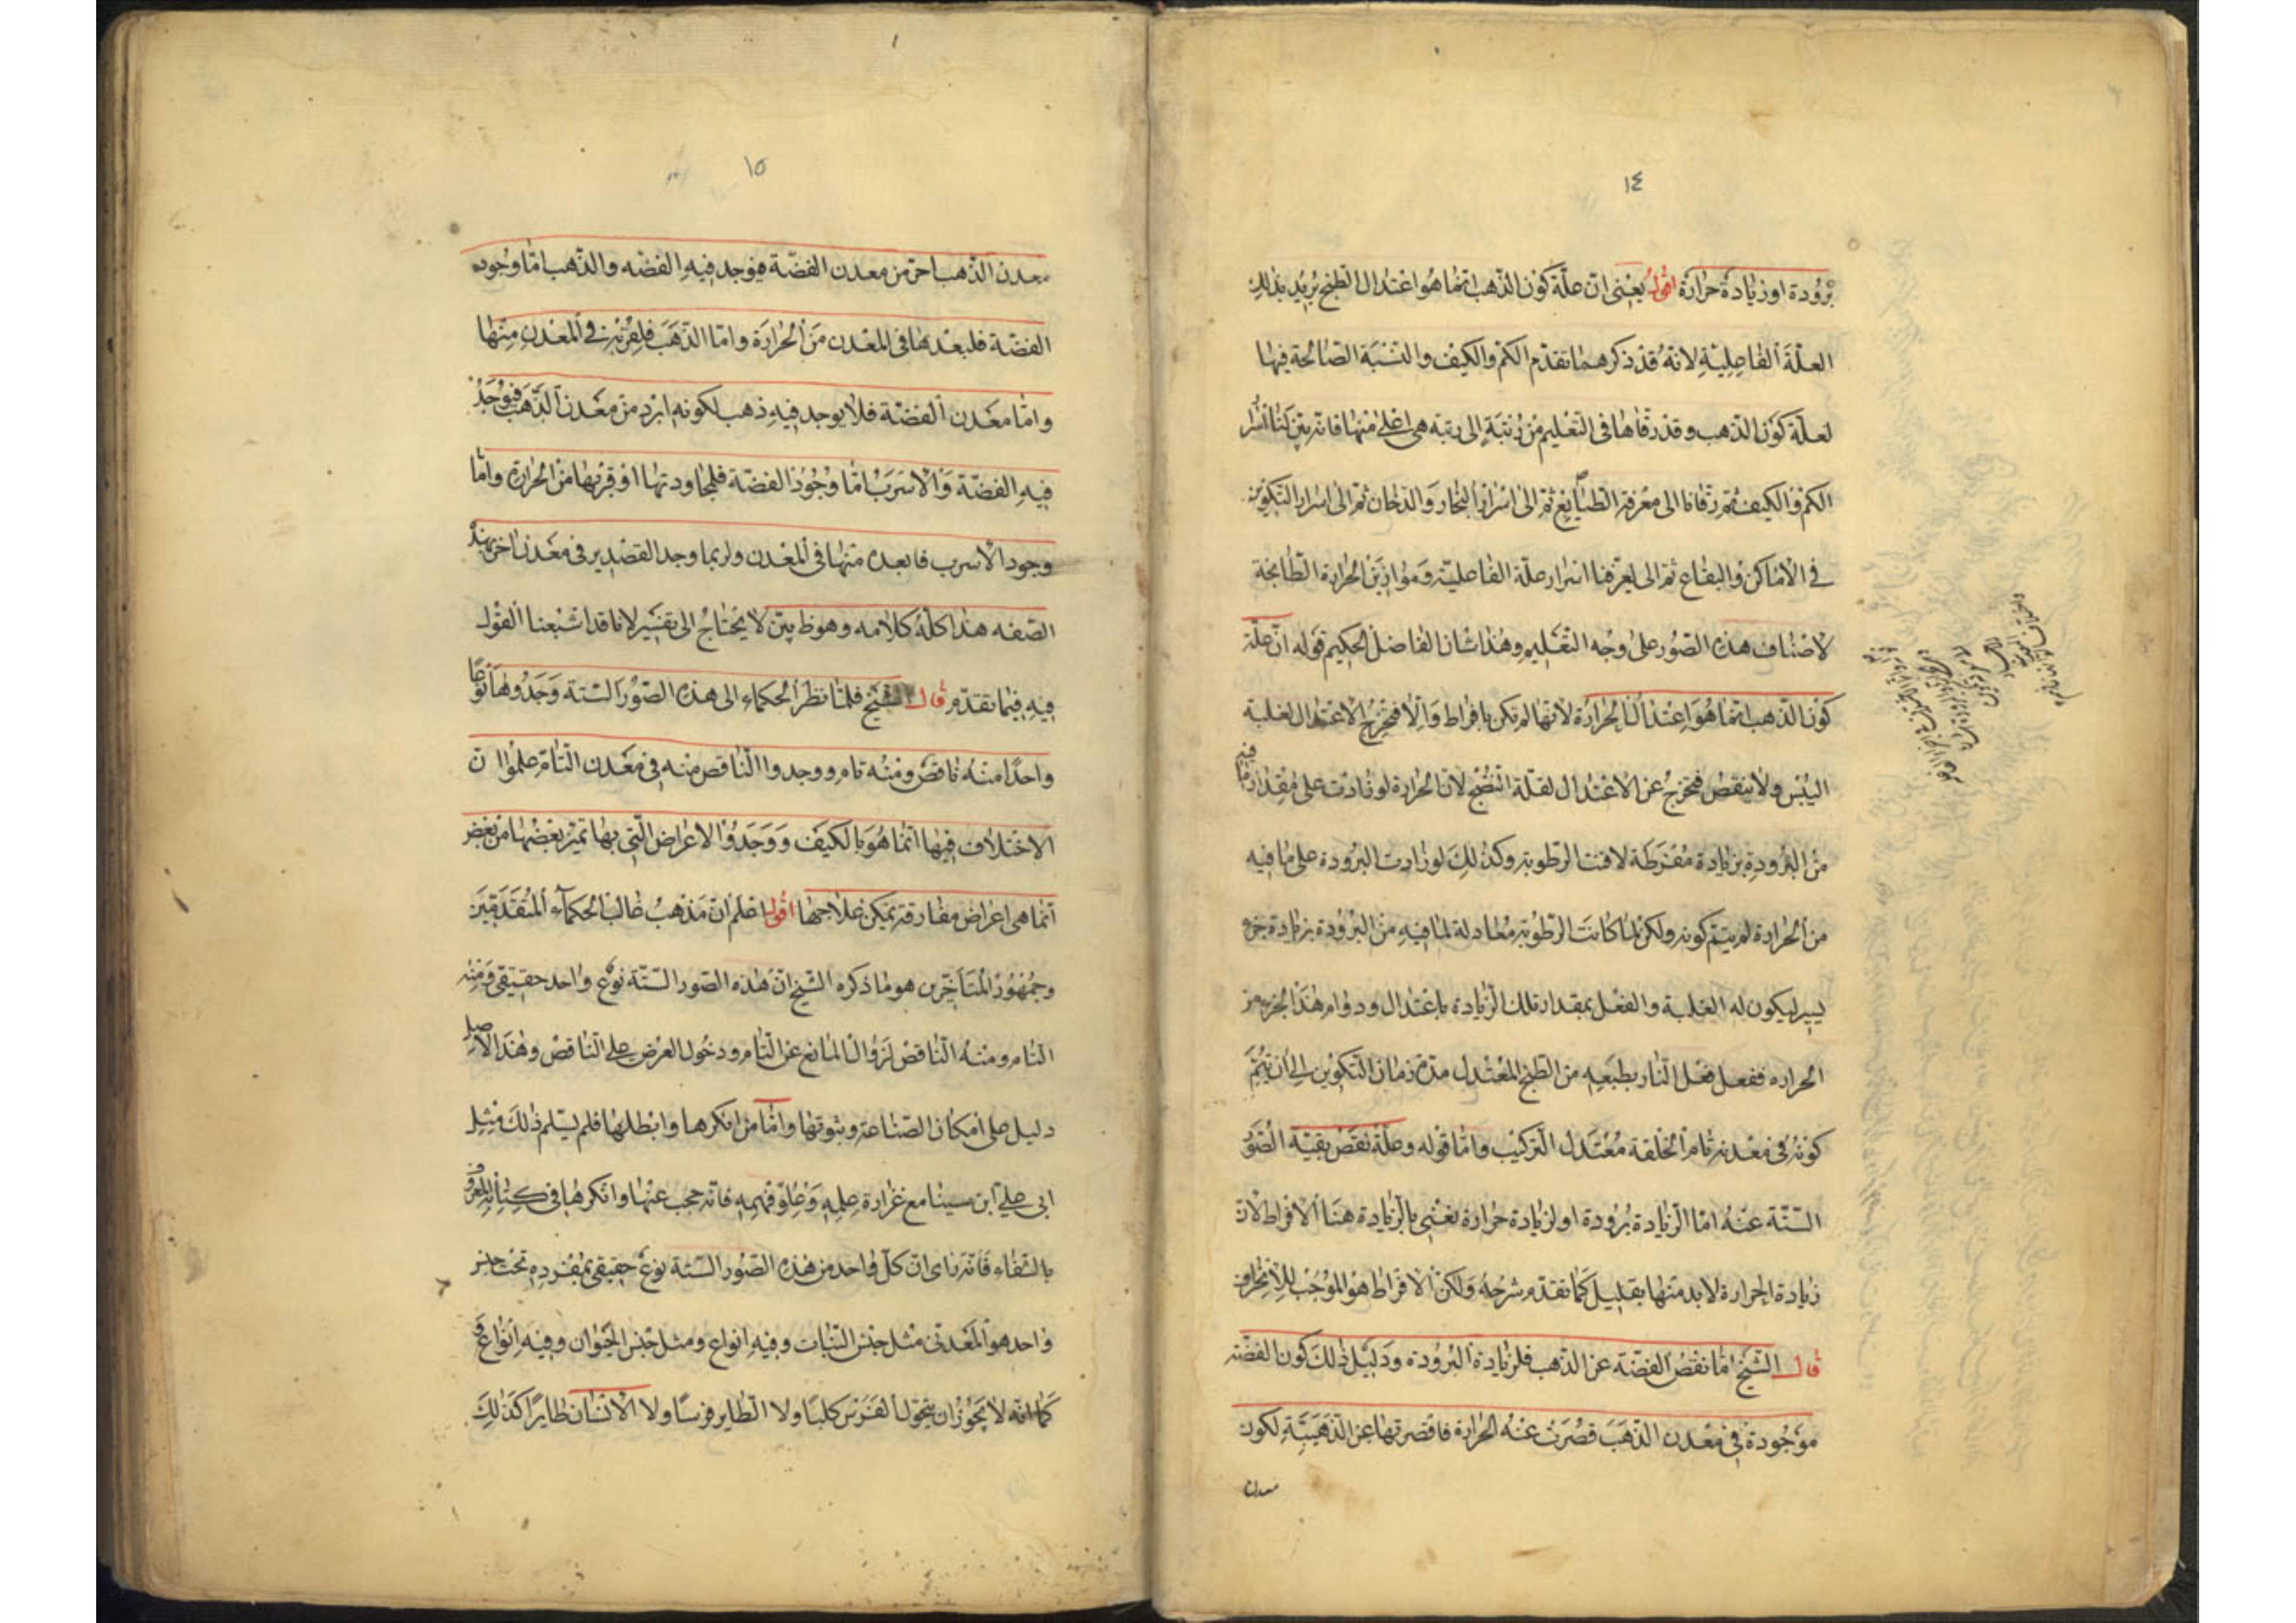 ١٤
برودة او زيادة حرارة اقول يعنى ان علة كون الذهب انما هو اعتدال الطبخ يريد بذلك
العلة الفاعلية لانه قد ذكر هما تقدم الكم والكيف والنسبة الصالحة فيها
لعلة كون الذهب وقد رقاها فى التعليم من رتبة الى رتبة هى اعلى منها فانه بين لنا اسرار
الكم والكيف ثم رقانا الى معرفة الطبايع ثم الى اسرار البخار والدخان ثم الى اسرار التكوين
في الاماكن والبقاع ثم الى يعرفنا اسرار علة الفاعلية وموازين الحرارة الطابخة
لاصناف هذه الصور على وجه التعليم وهذا شان الفاضل الحكيم قوله ان علة
كون الذهب انما هو اعتدال الحرارة لانها لم تكن بافراط والا فتخرج الاعتدال لغلبة
اليبس ولا بنقص فتخرج عن الاعتدال لقلة النضج لان الحرارة لو زادت على مقدار ما فيه
من البرودة بزيادة مفرطة لافنت الرطوبة وكذلك لو زادت البرودة على ما فيه
من الحرارة لم يتم كونه ولكن لما كانت الرطوبة معادلة لما فيه من البرودة بزيادة جزء
يسير ليكون له الغلبة والفعل بمقدار تلك الزيادة باعتدال ودوام هذا الجزء من
الحرارة ففعل فعل النار بطبعه من الطبخ المعتدل مدة زمان التكوين الى ان يتم
كونه فى معدنه تام الخلقة معتدل التركيب واما قوله وعلة نقص بقية الصور
الستة عنه اما الزيادة برودة او لزيادة حرارة يعنى بالزيادة هنا الافراط لان
زيادة الحرارة لا بد منها بقليل كما تقدم شرحه ولكن الافراط هو الموجب للانحراف
قال الشيخ اما نقص الفضة عن الذهب فلزيادة البرودة ودليل ذلك كون الفضة
موجودة في معدن الذهب قصرت عنه الحرارة فاقصرتها عن الذهبية لكون
معدن
١٥
معدن الذهب احر من معدن الفضة فيوجد فيه الفضه والذهب اما وجود
الفضة فلبعدها فى المعدن من الحرارة واما الذهب فلقربه في المعدن منها
واما معدن الفضة فلا يوجد فيه ذهب لكونه ابرد من معدن الذهب فيوجد
فيه الفضة والاسرب اما وجود الفضة فلمجاورتها او قربها من الحرارة واما
وجود الاسرب فابعده منها فى المعدن ولربما وجد القصدير فى معدن اخر بهذه
الصفه هذا كله كلامه وهو ظ بين لا يحتاج الى تفسير لانا قد اشبعنا القول
فيه فيما تقدم قال الشيخ فلما نظر الحكماء الى هذه الصور الستة وجدوها نوعا
واحدا منه ناقص ومنه تام ووجدوا الناقص منه في معدن التام علموا ان
الاختلاف فيها انما هو بالكيف ووجدوا الاعراض التي بها تميز بعضها من بعض
انما هى اعراض مفارقة يمكن علاجها اقول اعلم ان مذهب غالب الحكمآء المتقدمين
وجمهور المتأخرين هو ما ذكره الشيخ ان هذه الصور الستة نوع واحد حقيقى ومنه
التام ومنه الناقص لزوال المانع عن التام ودخول العرض على الناقص وهذا الاصل
دليل على امكان الصناعة وثبوتها واما من انكرها وابطلها فلم يسلم ذلك مثل
ابى على ابن سينا مع غزارة علمه وعلو فهمه فانه حجب عنها وانكرها فى كتابه المعروف
بالشفاء فانه راى ان كل واحد من هذه الصور الستة نوع حقيقى بمفرده تحت جنس
واحد هو المعدنى مثل جنس النبات وفيه انواع ومثل جنس الحيوان وفيه انواع و
كما انه لا يجوز ان يتحول الفرس كلبا ولا الطاير فرسا ولا الانسان طايرا كذلك